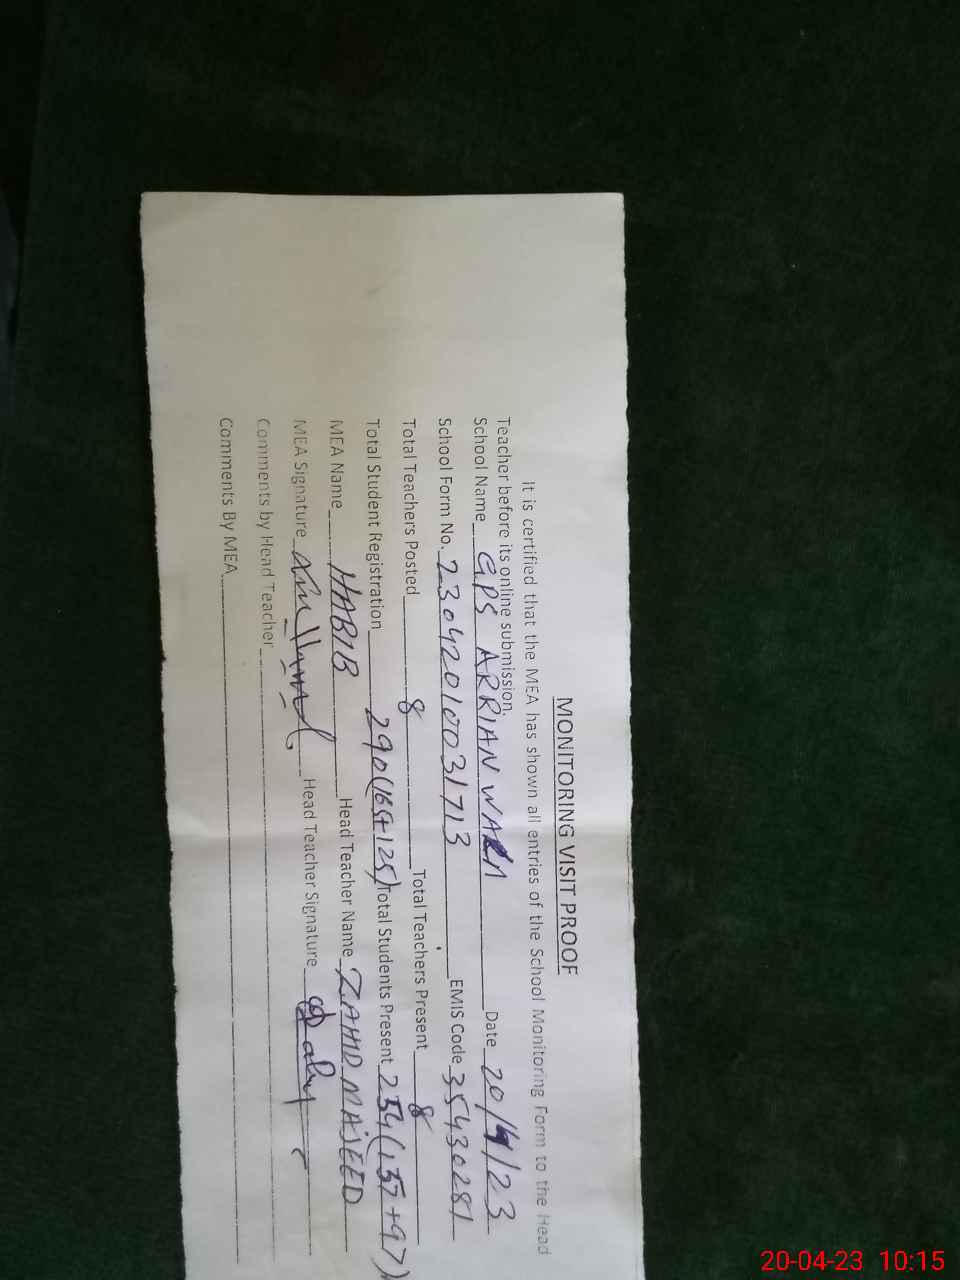 MONITORING VISIT PROOF
It is certified that the MEA has shown all entries of the School Monitoring Form to the Head
Teacher before its online submission.
School Name GPS ARRIAN WALA Date 20/4/23
School Form No. 23042010031713 EMIS Code 35430281
Total Teachers Posted 8 Total Teachers Present 8
Total Student Registration 290(165+125) Total Students Present 254(157+97)
MEA Name HABIB Head Teacher Name ZAHID MAJEED
MEA Signature Head Teacher Signature
Comments by Head Teacher
Comments By MEA
20-04-23 10:15